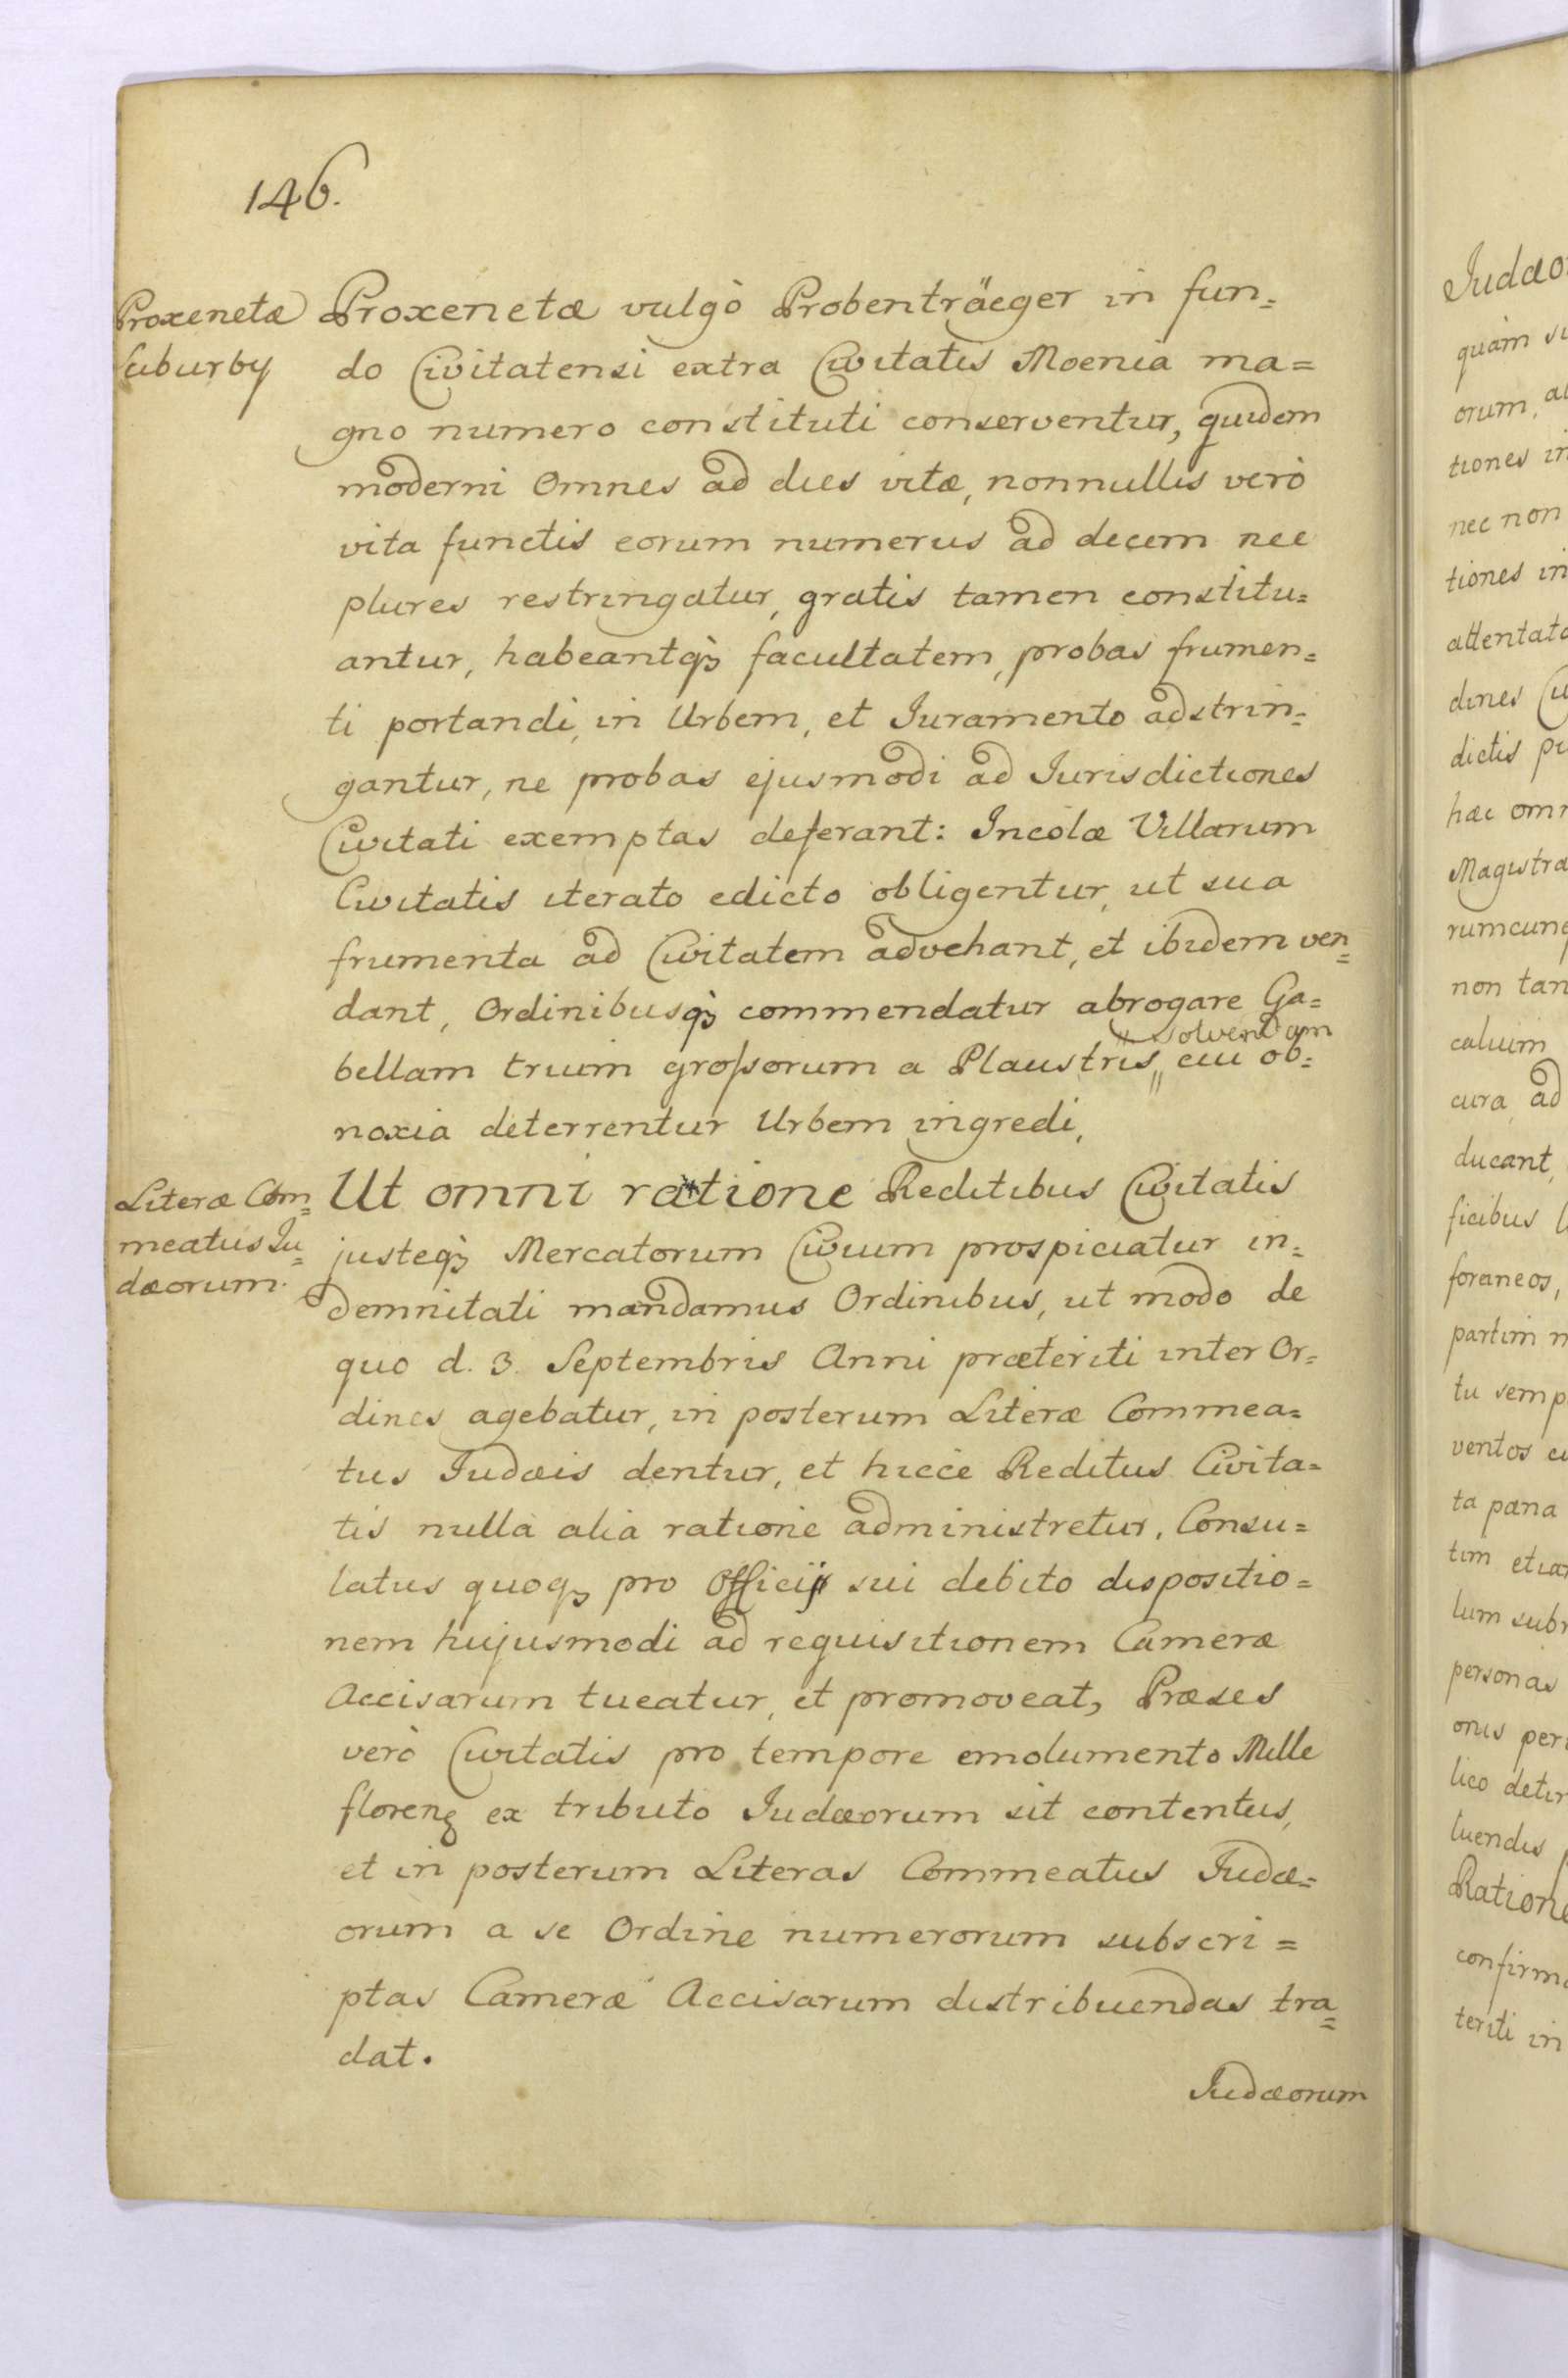 146.
Proxenetæ
suburby
Proxenetæ vulgò Probenträeger in fun=
do Civitatensi extra Civitatis Moenia ma=
gno numero constituti conserventur, quidem
moderni Omnes ad dies vitæ, nonnullis verò
vita functis eorum numerus ad decem nec
plures restringatur, gratis tamen constitu=
antur, habeantq₃ facultatem, probas frumen=
ti portandi, in Urbem, et Iuramento adstrin=
gantur, ne probas ejusmodi ad Iurisdictiones
Civitati exemptas deferant: Incolæ Villarum
Civitatis iterato edicto obligentur, ut sua
frumenta ad Civitatem advehant, et ibidem ven=
dant, Ordinibusq₃ commendatur abrogare Ga=
solvendam
bellam trium grossorum a Plaustris,, cui ob=
noxia deterrentur Urbem ingredi,
Literæ Com=
meatus Iu=
dæorum.
Ut omni ratione Reditibus Civitatis
justeq₃ Mercatorum Civium prospiciatur in=
demnitati mandamus Ordinibus, ut modo de
quo d. 3. Septembris Anni præteriti inter Or=
dines agebatur, in posterum Literæ Commea=
tus Iudæis dentur, et hicce Reditus Civita=
tis nulla alia ratione administretur, Consu=
latus quoq₃ pro Officij sui debito dispositio=
nem hujusmodi ad requisitionem Cameræ
Accisarum tueatur, et promoveat, Præses
verò Civitatis pro tempore emolumento Mille
floren ex tributo Iudæorum sit contentus,
et in posterum Literas Commeatus Iudæ=
orum a se Ordine numerorum subscri=
ptas Cameræ Accisarum distribuendas tra=
dat.
Iudæorum
Iudæo
quàm
orum,
tiones in
nec non
tiones in
attentato
dines
dictis
hæc
Magistra
non tan
cura ad
ducant,
ficibus
foraneos,
partim
tu semp
ventos
ta pæna
tim etia
lum
personas
onis per
lico
luendis
Ratione
confirma
teriti in